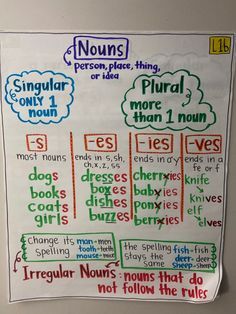 L1b
Nouns
person, place, thing,
or idea
Singular
ONLY 1
noun
Plural
more
than 1 noun
-s
most nouns
dogs
books
coats
girls
-es
ends in s, sh,
ch, x, z, ss
dresses
boxes
dishes
buzzes
-ies
ends in a "y"
cherryies
babyies
ponyies
berryies
-ves
ends in a
fe or f
knife
knives
elf
elves
Change its
spelling
man-men
tooth-teeth
mouse-mice
the spelling
stays the
same
fish-fish
deer-deer
sheep-sheep
Irregular Nouns: nouns that do
not follow the rules